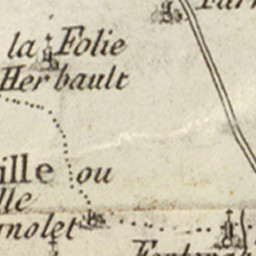 la Folie
Herbault
ille ou
lle
nolet